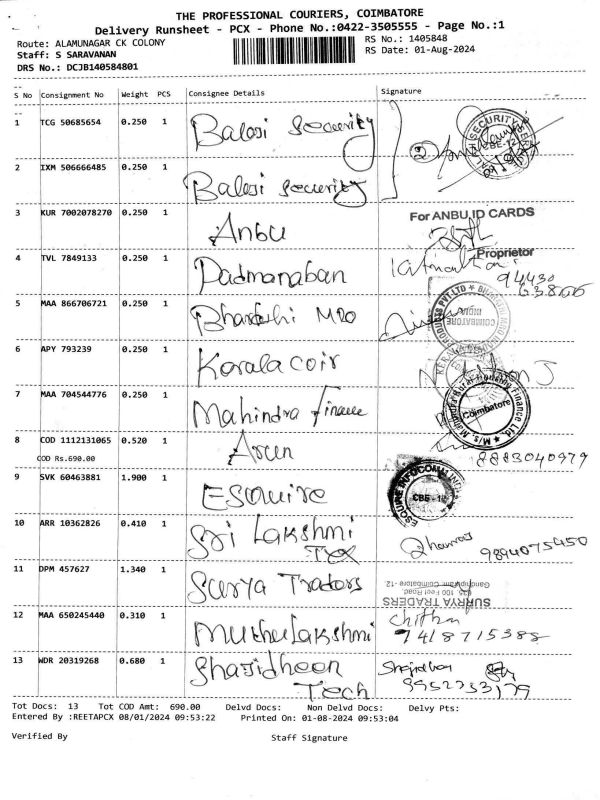 THE PROFESSIONAL COURIERS, COIMBATORE
Delivery Runsheet - PCX - Phone No.:0422-3505555 - Page No.:1
Route: ALAMUNAGAR CK COLONY RS No.: 1405848
Staff: S SARAVANAN RS Date: 01-Aug-2024
DRS No.: DCJB140584801
S No Consignment No Weight PCS Consignee Details Signature
1 TCG 50685654 0.250 1 Balaji Security
2 IXM 506666485 0.250 1 Balaji Security
3 KUR 7002078270 0.250 1 Anbu For ANBU ID CARDS
Proprietor
4 TVL 7849133 0.250 1 Padmanaban 94430
63866
5 MAA 866706721 0.250 1 Bharathi MRO
6 APY 793239 0.250 1 Kerala coir
7 MAA 704544776 0.250 1 Mahindra Finance
Coimbatore
8 COD 1112131065 0.520 1 Arun 8883040979
COD Rs.690.00
9 SVK 60463881 1.900 1 ESQUIRE CBE - 12
10 ARR 10362826 0.410 1 Sri Lakshmi Tex 9894075450
11 DPM 457627 1.340 1 Surya Traders SURRYA TRADERS
100 Feet Road,
Gandhipuram Coimbatore -12
12 MAA 650245440 0.310 1 Muthulakshmi 7418715388
13 WDR 20319268 0.680 1 Shajidheen Tech 9952733179
Tot Docs: 13 Tot COD Amt: 690.00 Delvd Docs: Non Delvd Docs: Delvy Pts:
Entered By :REETAPCX 08/01/2024 09:53:22 Printed On: 01-08-2024 09:53:04
Verified By Staff Signature